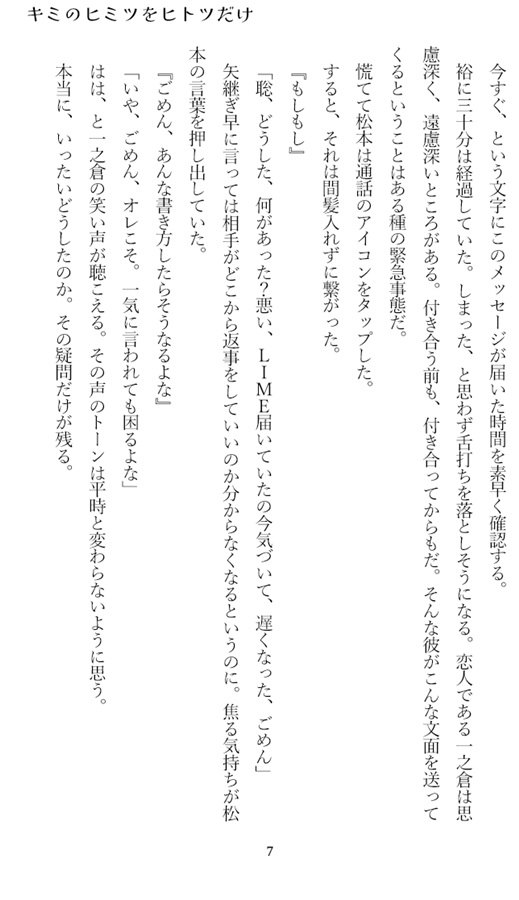 キミのヒミツをヒトツだけ
今すぐ、という文字にこのメッセージが届いた時間を素早く確認する。
裕に三十分は経過していた。しまった、と思わず舌打ちを落としそうになる。恋人である一之倉は思
慮深く、遠慮深いところがある。付き合う前も、付き合ってからもだ。そんな彼がこんな文面を送って
くるということはある種の緊急事態だ。
慌てて松本は通話のアイコンをタップした。
すると、それは間髪入れずに繋がった。
『もしもし』
「聡、どうした、何があった？悪い、ＬＩＭＥ届いていたの今気づいて、遅くなった、ごめん」
矢継ぎ早に言っては相手がどこから返事をしていいのか分からなくなるというのに。焦る気持ちが松
本の言葉を押し出していた。
『ごめん、あんな書き方したらそうなるよな』
「いや、ごめん、オレこそ。一気に言われても困るよな」
はは、と一之倉の笑い声が聴こえる。その声のトーンは平時と変わらないように思う。
本当に、いったいどうしたのか。その疑問だけが残る。
7